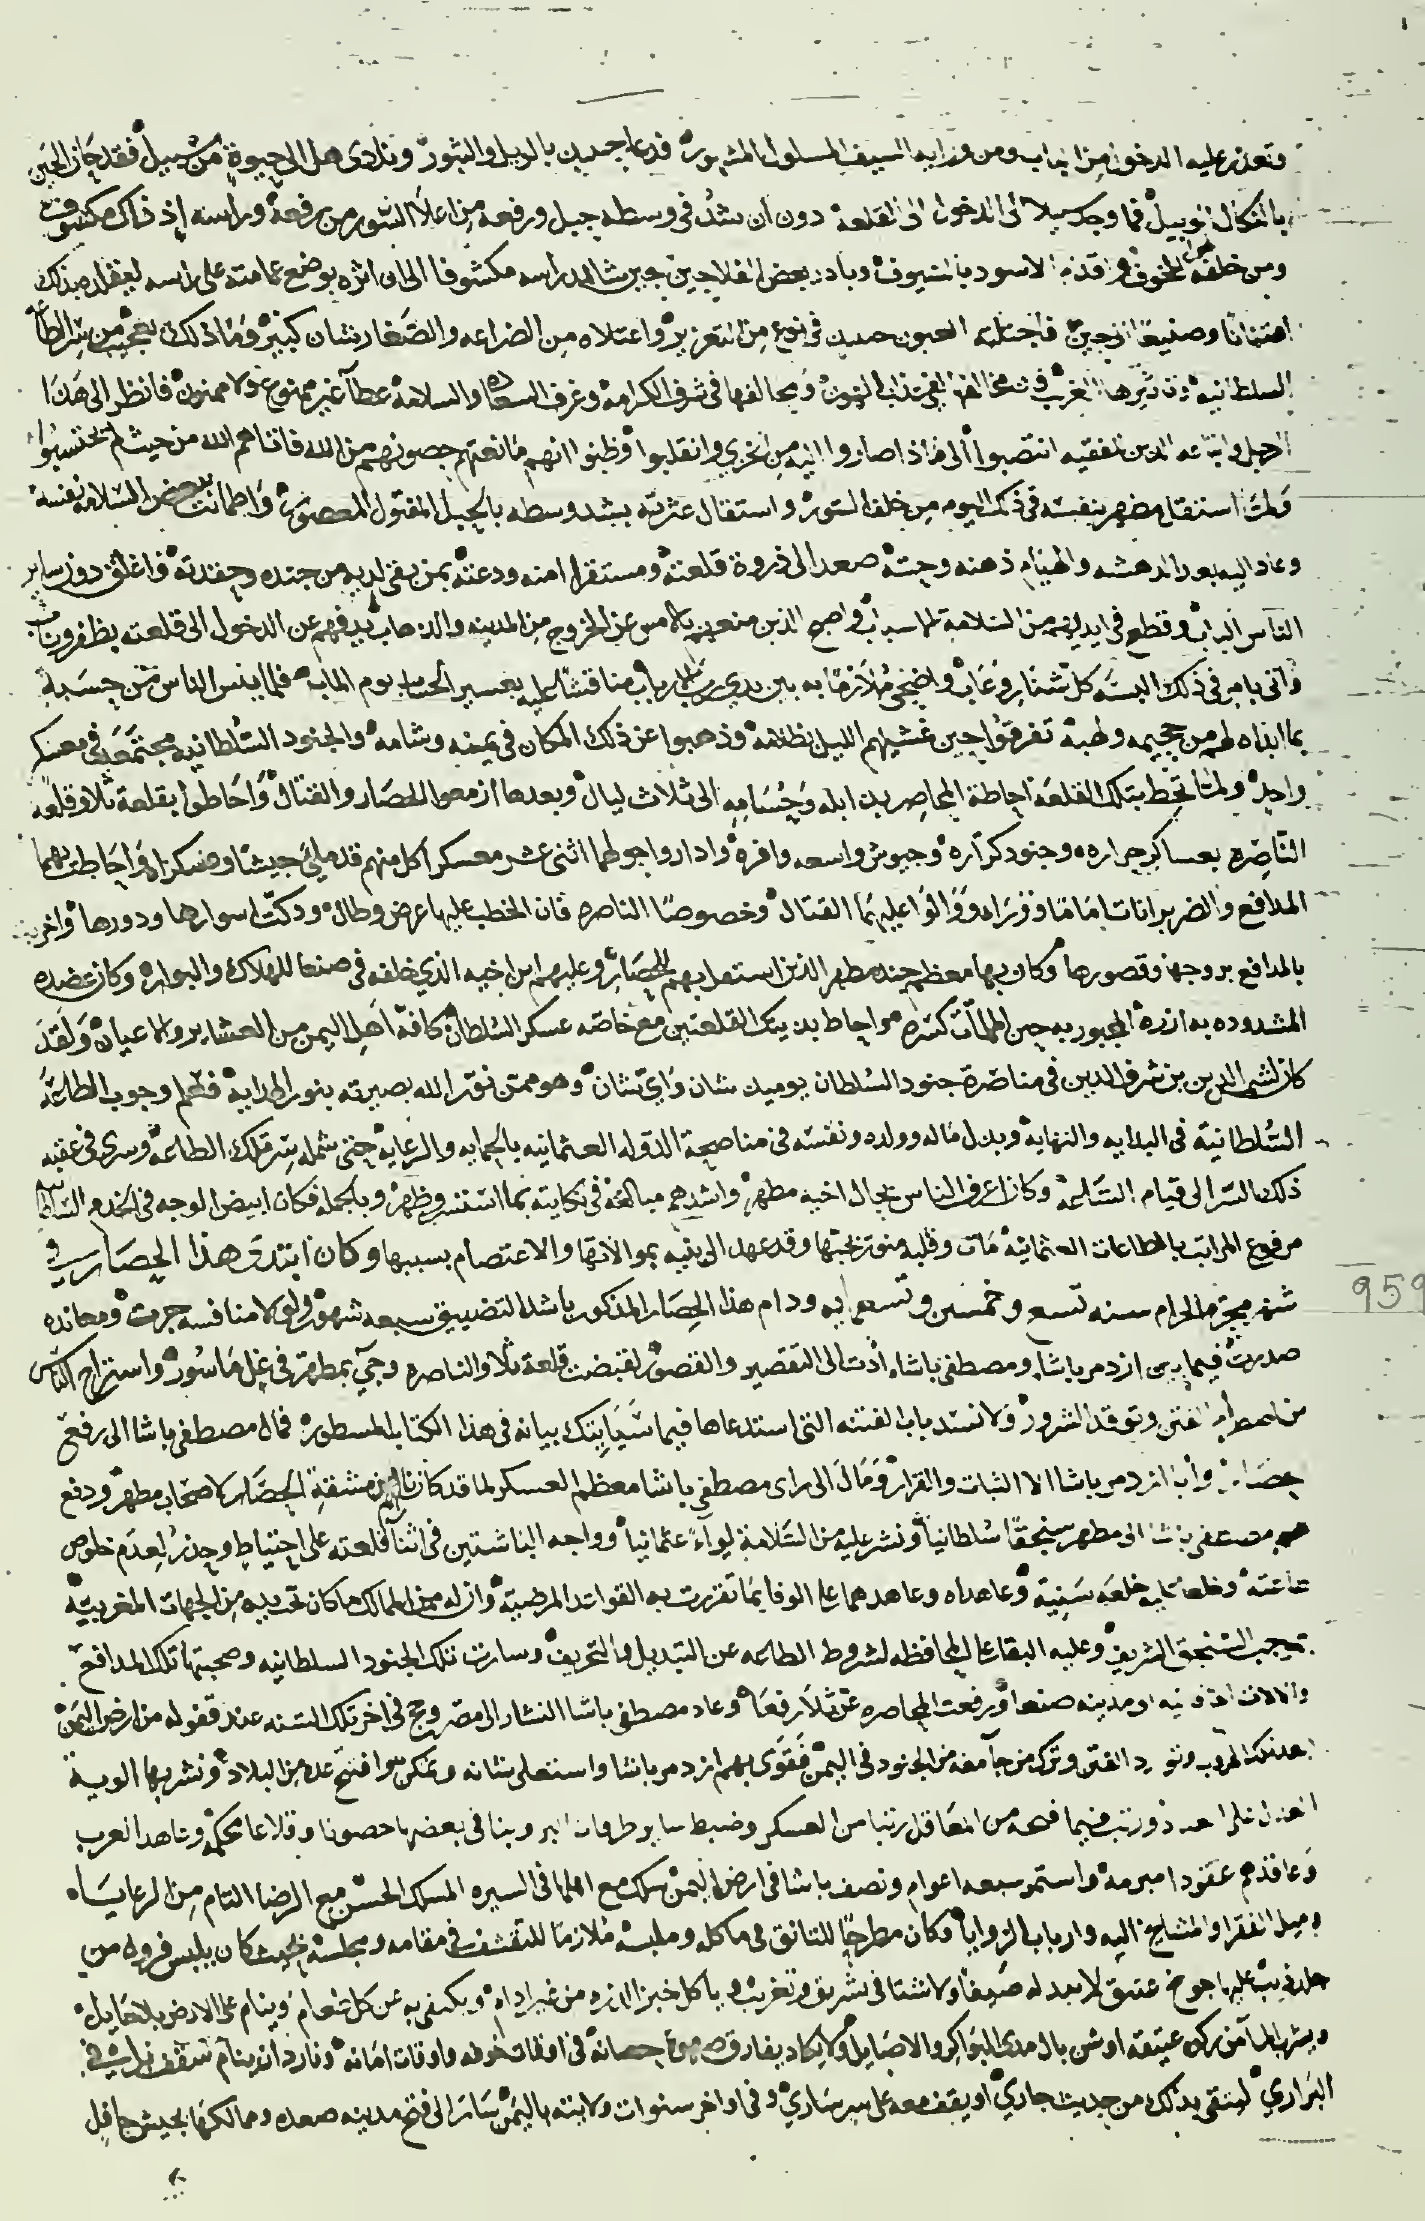 وتعذر عليه الدخول من الباب ومن ورايه السيف المسلول المشهور فدعا حينيذ بالويل والثبور ونادى هل الى حيوة من سبيل فقد حان الحين
بالنكال الوبيل فما وجد سبيلا الى الدخول الى القلعة دون ان شد في وسطه حبل ورفعه من اعلا السور من رفعه وراسه اذ ذاك مكشوف
ومن خلفه الاسود بالسيوف وبادر بعض الفلاحين حين شاهد راسه مكشوفا الى ان اثره بوضع عمامته على راسه
امتنانا وصنيعا فاجتلته العيون حينيذ في نوع من التعزير واعتلاه من الضراعه والصغار شان كبير وما ذلك بعجيب من سر الطاعة
السلطانية وتاثيرها الغريب في مخالفها في شرف الكرامه وغرف السعاده والسلامة عطآ غير ممنوع ولا ممنون فانظر الى هذا
الرجل واتباعه الذين انتصبوا الى ماذا صاروا اليه من الخزي وانقلبوا وظنوا انهم مانعتهم حصونهم من الله فاتاهم الله من حيث لم يحتسبوا
ولما استقل مطهر بنفسه في ذلك اليوم من خلف السور واستقال عثرته بشد وسطه بالحبل المفتول المعصور واطمانت ببعض السلامة نفسه
وعاد اليه بعد الدهشه والهيام ذهنه وحسه صعد الى ذروة قلعته ومستقر امنه ودعته بمن بقي لديه من جنده وحفدته واغلق دون ساير
الناس الباب وقطع في ايديهم من السلامة الاسباب واصبح الذين منعهم بالامس عن الخروج من المدينه والذهاب يدفعهم عن الدخول الى قلعته بظفر وناب
واتى بامر في ذلك البسه كل شنار وعاب واضحى ملازما به بين يدي رب الارباب مناقشا عليه بعسير الحساب يوم الماب فلما ايس الناس من حسبه
بما ابداه لهم من جحيمه ولهبه تفرقوا حين غشيهم الليل بظلامه وذهبوا عن ذلك المكان في يمينه وشامه والجنود السلطانيه مجتمعة في معسكر
واحد ولما تحط بتلك القلعة احاطة المحاصر بذابله وحسامه الى ثلاث ليال وبعدها ازمعوا للحصار والقتال واحاطوا بقلعة ثلا وقلعة
الناصره بعساكر جراره وجنود كراره وجيوش واسعه وافره واداروا حولهما اثنى عشر معسكرا كل منهم قد ملئ جيشا وعسكرا واحاطت بهما
المدافع والضربزانات اماما ووراء ووالوا عليهما القتال وخصوصا الناصره فان الخطب عليها عرض وطال ودكت اسوارها ودورها واخربت
بالمدافع بروجها وقصورها وكان بها معظم جند مطهر الذين استعد بهم للحصار وعليهم ابن اخيه الذي خلفه في صنعا للهلاك والبوار وكان عضده
المشدوده به ازره المجبور به حين الملمات كسره واحاط بذينك القلعتين مع خاصه عسكر السلطان كافة اهل اليمن من العشاير والاعيان ولقد
كان لشمس الدين بن شرف الدين في مناصرة جنود السلطان يوميذ شان واي شان وهو ممن نور الله بصيرته بنور الهدايه فعلم وجوب الطاعة
السلطانية في البدايه والنهايه وبدل ماله وولده ونفسه في مناصحة الدوله العثمانيه بالحمايه والرعايه حتى شمله سر تلك الطاعه وسرى في عقبه
ذلك السر الى قيام الساعه وكان اعرف الناس بحال اخيه مطهر واشدهم مبالغة في نكايته بما استتر وظهر وبالجمله فكان ابيض الوجه في الخدم السلطانيه
مرفوع المراتب بالطاعات العثمانية مات وقلبه منور بحبها وقد عهد الى بنيه بموالاتها والاعتصام بسببها وكان ابتدى هذا الحصار في
شهر محرم الحرام سنه تسع وخمسين وتسعمايه ودام هذا الحصار المذكور باشد التضييق سبعه شهور ولولا منافسه جرت ومعانده
صدرت فيما بين ازدمر باشا ومصطفى باشا ادت الى التقصير والقصور لقبضت قلعة ثلا والناصره وجي بمطهر في غل ماسور واستراح الناس
من اضطرام الفتن وتوقد الشرور ولانسد باب الفتنه التي استدعاها فيما سياتيك بيانه في هذا الكتاب المسطور فمال مصطفى باشا الى رفع
حصاره وابى ازدمر باشا الا الثبات والقرار ومال الى راى مصطفى باشا معظم العسكر لما قد كان نالهم من مشقة الحصار لاصحاب مطهر ودفع
مصطفى باشا الى مطهر سنجقا سلطانيا ونشر عليه من السلامة لواء عثمانيا وواجه الباشتين في اثنا قلعته على احتياط وحذر لعدم خلوص
طاعته وخلعا عليه خلعة سنية وعاهداه وعاهدهما على الوفا بما تقررت به القواعد المرضية وان له من الممالك ما كان تحت يده من الجهات المغربيه
بموجب السنجق الشريف وعليه البقا على المحافظه لشروط الطاعه عن التبديل والتحريف وسارت تلك الجنود السلطانيه وصحبتها تلك المدافع
والالات الى مدينه صنعا ورفعت المحاصره عن ثلا رفعا وعاد مصطفى باشا النشار الى مصر وحج في اخر تلك السنه عند قفوله من ارض اليمن
بعد تلك الحروب الفتن وترك من جآ معه من الجنود في اليمن فقوى بهم ازدمر باشا واستعلى شانه وتمكن وافتتح عده من البلاد ونشر بها الوية
العدل ورتب فيما فتحه من المعاقل رتبا من العسكر وضبط ساير طرقات البر وبنا في بعضها حصونا وقلاعا محكمه وعاهد العرب
وعاقدهم عقودا مبرمه واستمر سبعه اعوام ونصف باشا في ارض اليمن سلك مع اهلها في السيره المسلك الحسن مع الرضا التام من الرعايا
وميل الفقرا والمشايخ اليه وارباب الزوايا وكان مطرحا للتانق في ماكله وملبسه ملازما للتقشف في مقامه ومجلسه بحيث كان يلبس فروه من
جلد عليها جوخ عتيق لا يعد له صيفا ولا شتا في تشريق وتغريب وياكل خبز الذره من غير ادام ويكتفي به عن كل طعام وينام على الارض بلا حايل
ويشرب الما من ركوه عتيقه او شن بال مدى البواكر والاصايل ولا يكاد يفارق صهوة حصانه في اوقات خوفه واوقات امانه ونادرا ان ينام
البراري ليتقي بذلك من حديث جاري او يقف معه على سر ساري وفي اواخر سنوات ولايته باليمن سار الى فتح مدينه صعده وممالكها بجيش حافل
959